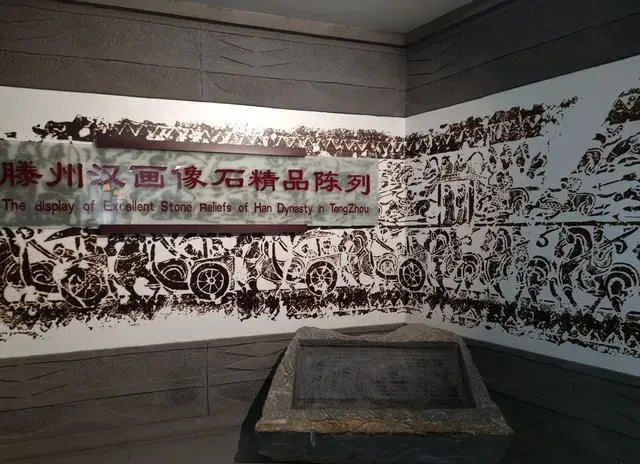 滕州汉画像石精品陈列
The display of Excellent Stone Reliefs of Han Dynasty in TengZhou